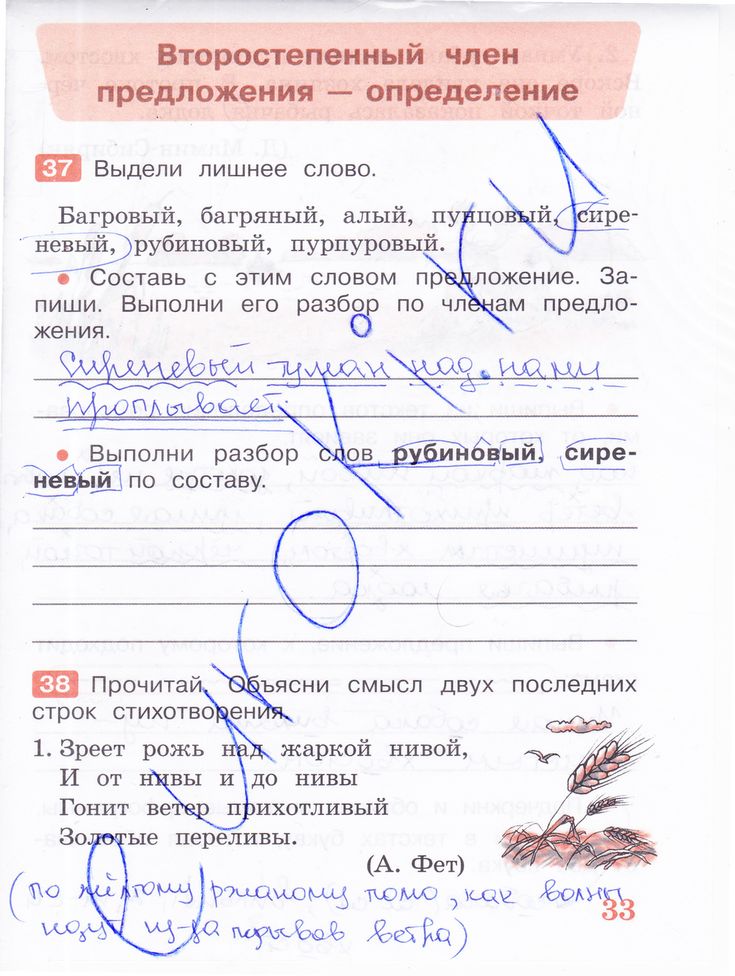 Второстепенный член
предложения — определение
37 Выдели лишнее слово.
Багровый, багряный, алый, пунцовый, сире-
невый, рубиновый, пурпуровый.
• Составь с этим словом предложение. За-
пиши. Выполни его разбор по членам предло-
жения.
Сиреневый туман над нами
проплывает.
• Выполни разбор слов рубиновый, сире-
невый по составу.
38 Прочитай. Объясни смысл двух последних
строк стихотворения.
1. Зреет рожь над жаркой нивой,
И от нивы и до нивы
Гонит ветер прихотливый
Золотые переливы.
(А. Фет)
(по жёлтому ржаному полю, как волны
идут из-за порывов ветра)
33